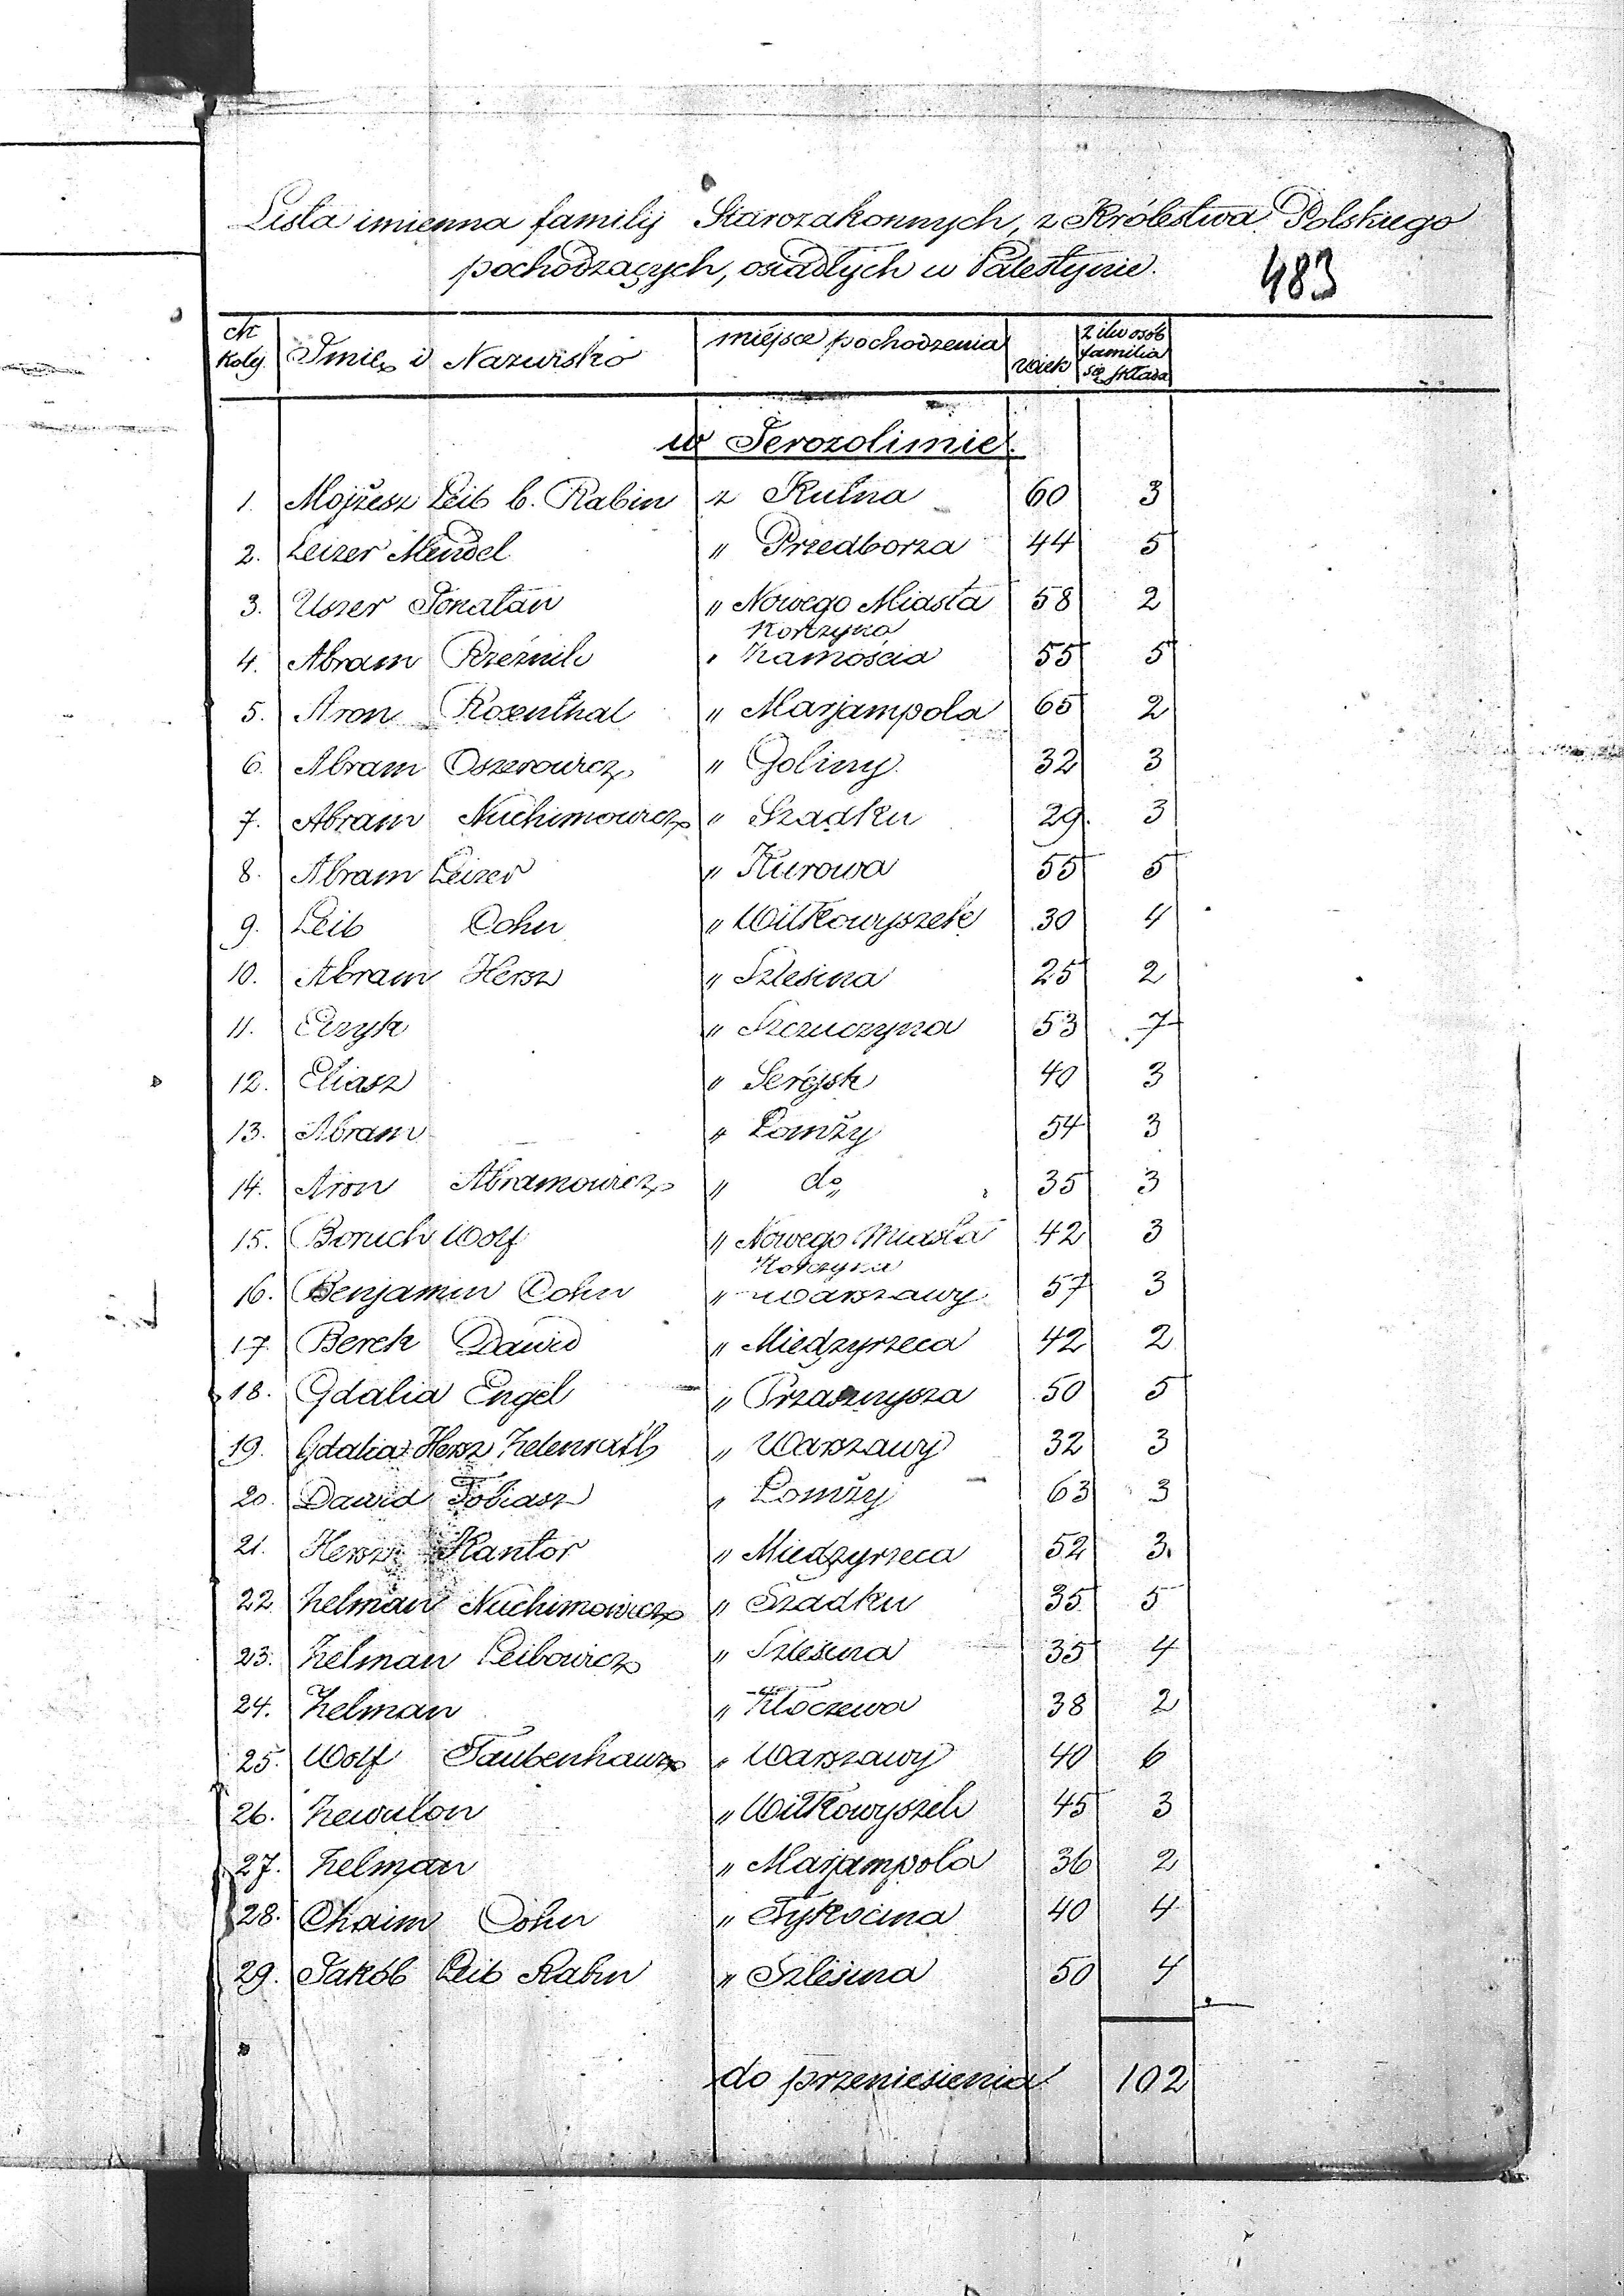 Lista imienna familij Starozakonnych, z Królestwa Polskiego
pochodzących, osiadłych w Palestynie.
483
N kolej. Imie i Nazwisko miejsce pochodzenia wiek z ilu osób familia się składa
w Jerozolimie.
1. Mojżesz Leib b. Rabin z Kutna 60 3
2. Leizer Mendel " Przedborza 44 5
3. Uszer Jonatan " Nowego Miasta Korczyna 58 2
4. Abram Rzeźnik " Zamościa 55 5
5. Aron Rosenthal " Marjampola 65 2
6. Abram Oszerowicz " Goliny 32 3
7. Abram Nuchimowicz " Szadku 29. 3
8. Abram Leizer " Kurowa 55 5
9. Leib Cohn " Wiłkowyszek 30 4
10. Abram Hersz " Szlesina 25 2
11. Eizyk " Szczuczyna 53 7
12. Eliasz " Serejsk 40 3
13. Abram " Łomży 54 3
14. Aron Abramowicz " do 35 3
15. Boruch Wolf " Nowego Miasta Korczyna 42 3
16. Benjamin Cohn " Warszawy 57 3
17. Berek Dawid " Miedzyrzeca 42 2
18. Gdalia Engel " Przasznysza 50 5
19. Gdalia Hersz Zelenrath " Warszawy 32 3
20. Dawid Tobiasz " Łomży 63 3
21. Hersz Kantor " Miedzyrzeca 52 3.
22. Zelman Nuchimowicz " Szadku 35 5
23. Zelman Leibowicz " Szlesina 35 4
24. Zelman " Kłoczewa 38 2
25. Wolf Taubenhausz " Warszawy 40 6
26. Zewulon " Wiłkowyszek 45 3
27. Zelman " Marjampola 36 2
28. Chaim Cohn " Tykocina 40 4
29. Jakób Leib Rabin " Szlesina 50 4
do przeniesienia 102